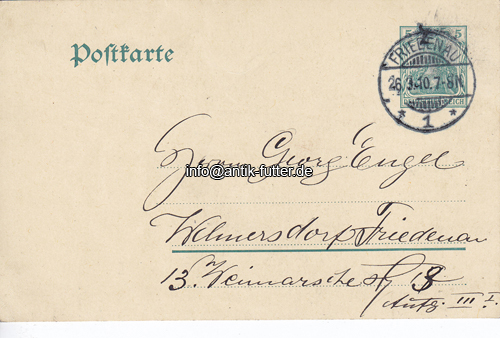 Postkarte
5
FRIEDENAU
26.3.10.7-8N
* 1 *
REICH
Herrn Georg Engel
info@antik-futter.de
Wilmersdorf Friedenau
13. Weimarschestr 8
Aufg. III I.